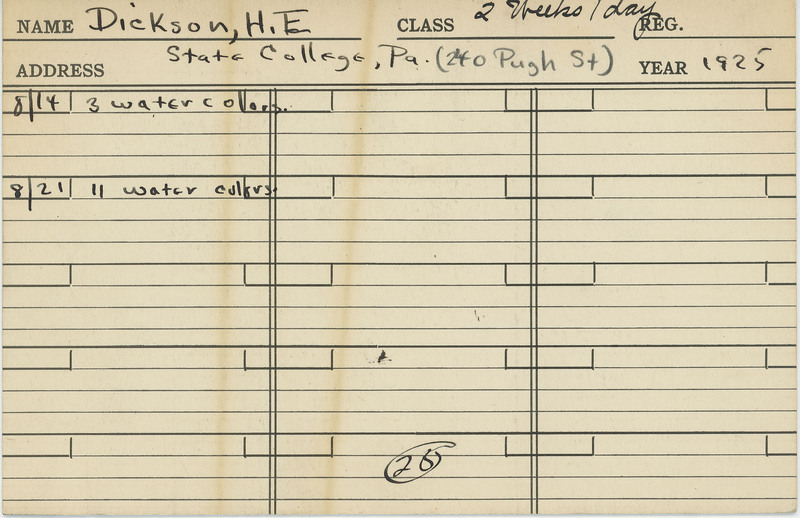 NAME Dickson, H.E CLASS 2 Weeks 1 day REG.
ADDRESS State College, Pa. (240 Pugh St) YEAR 1925
8/14 3 water colors.
8/21 11 water colors.
25